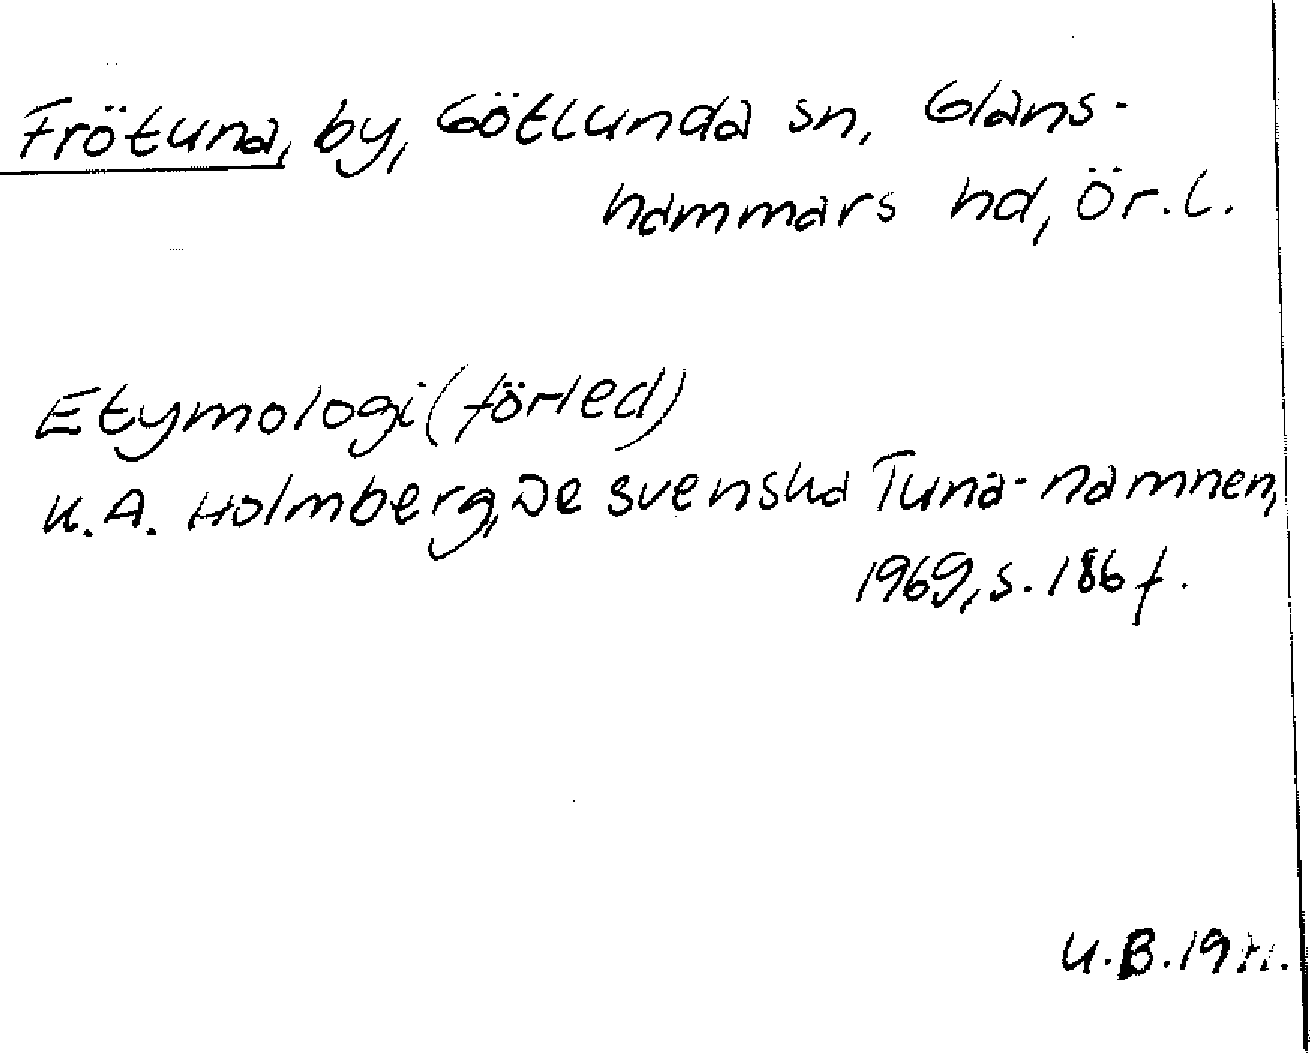 Frötuna, by, Götlunda sn, Glans-
hammars hd, Ör.l.
Etymologi (förled)
K.A. Holmberg, De svenska Tuna-namnen,
1969, s. 186 f.
U.B.